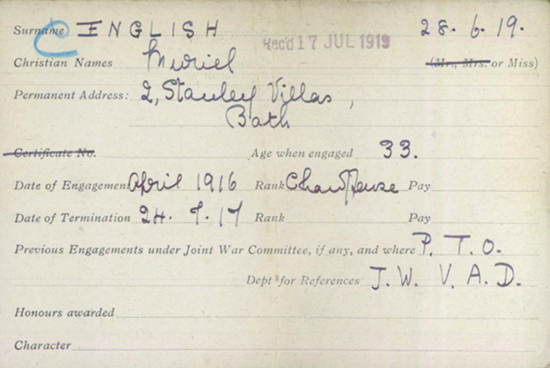 Surname ENGLISH Rec'd 17 JUL 1919 28.6.19.
Christian Names Muriel (Mr., Mrs. or Miss)
Permanent Address: 2, Stanley Villas,
Bath
Certificate No. Age when engaged 33.
Date of Engagement April 1916 Rank Chauffeuse Pay
Date of Termination 24.9.17 Rank Pay
Previous Engagements under Joint War Committee, if any, and where P.T.O.
Dept for References J.W.V.A.D.
Honours awarded
Character